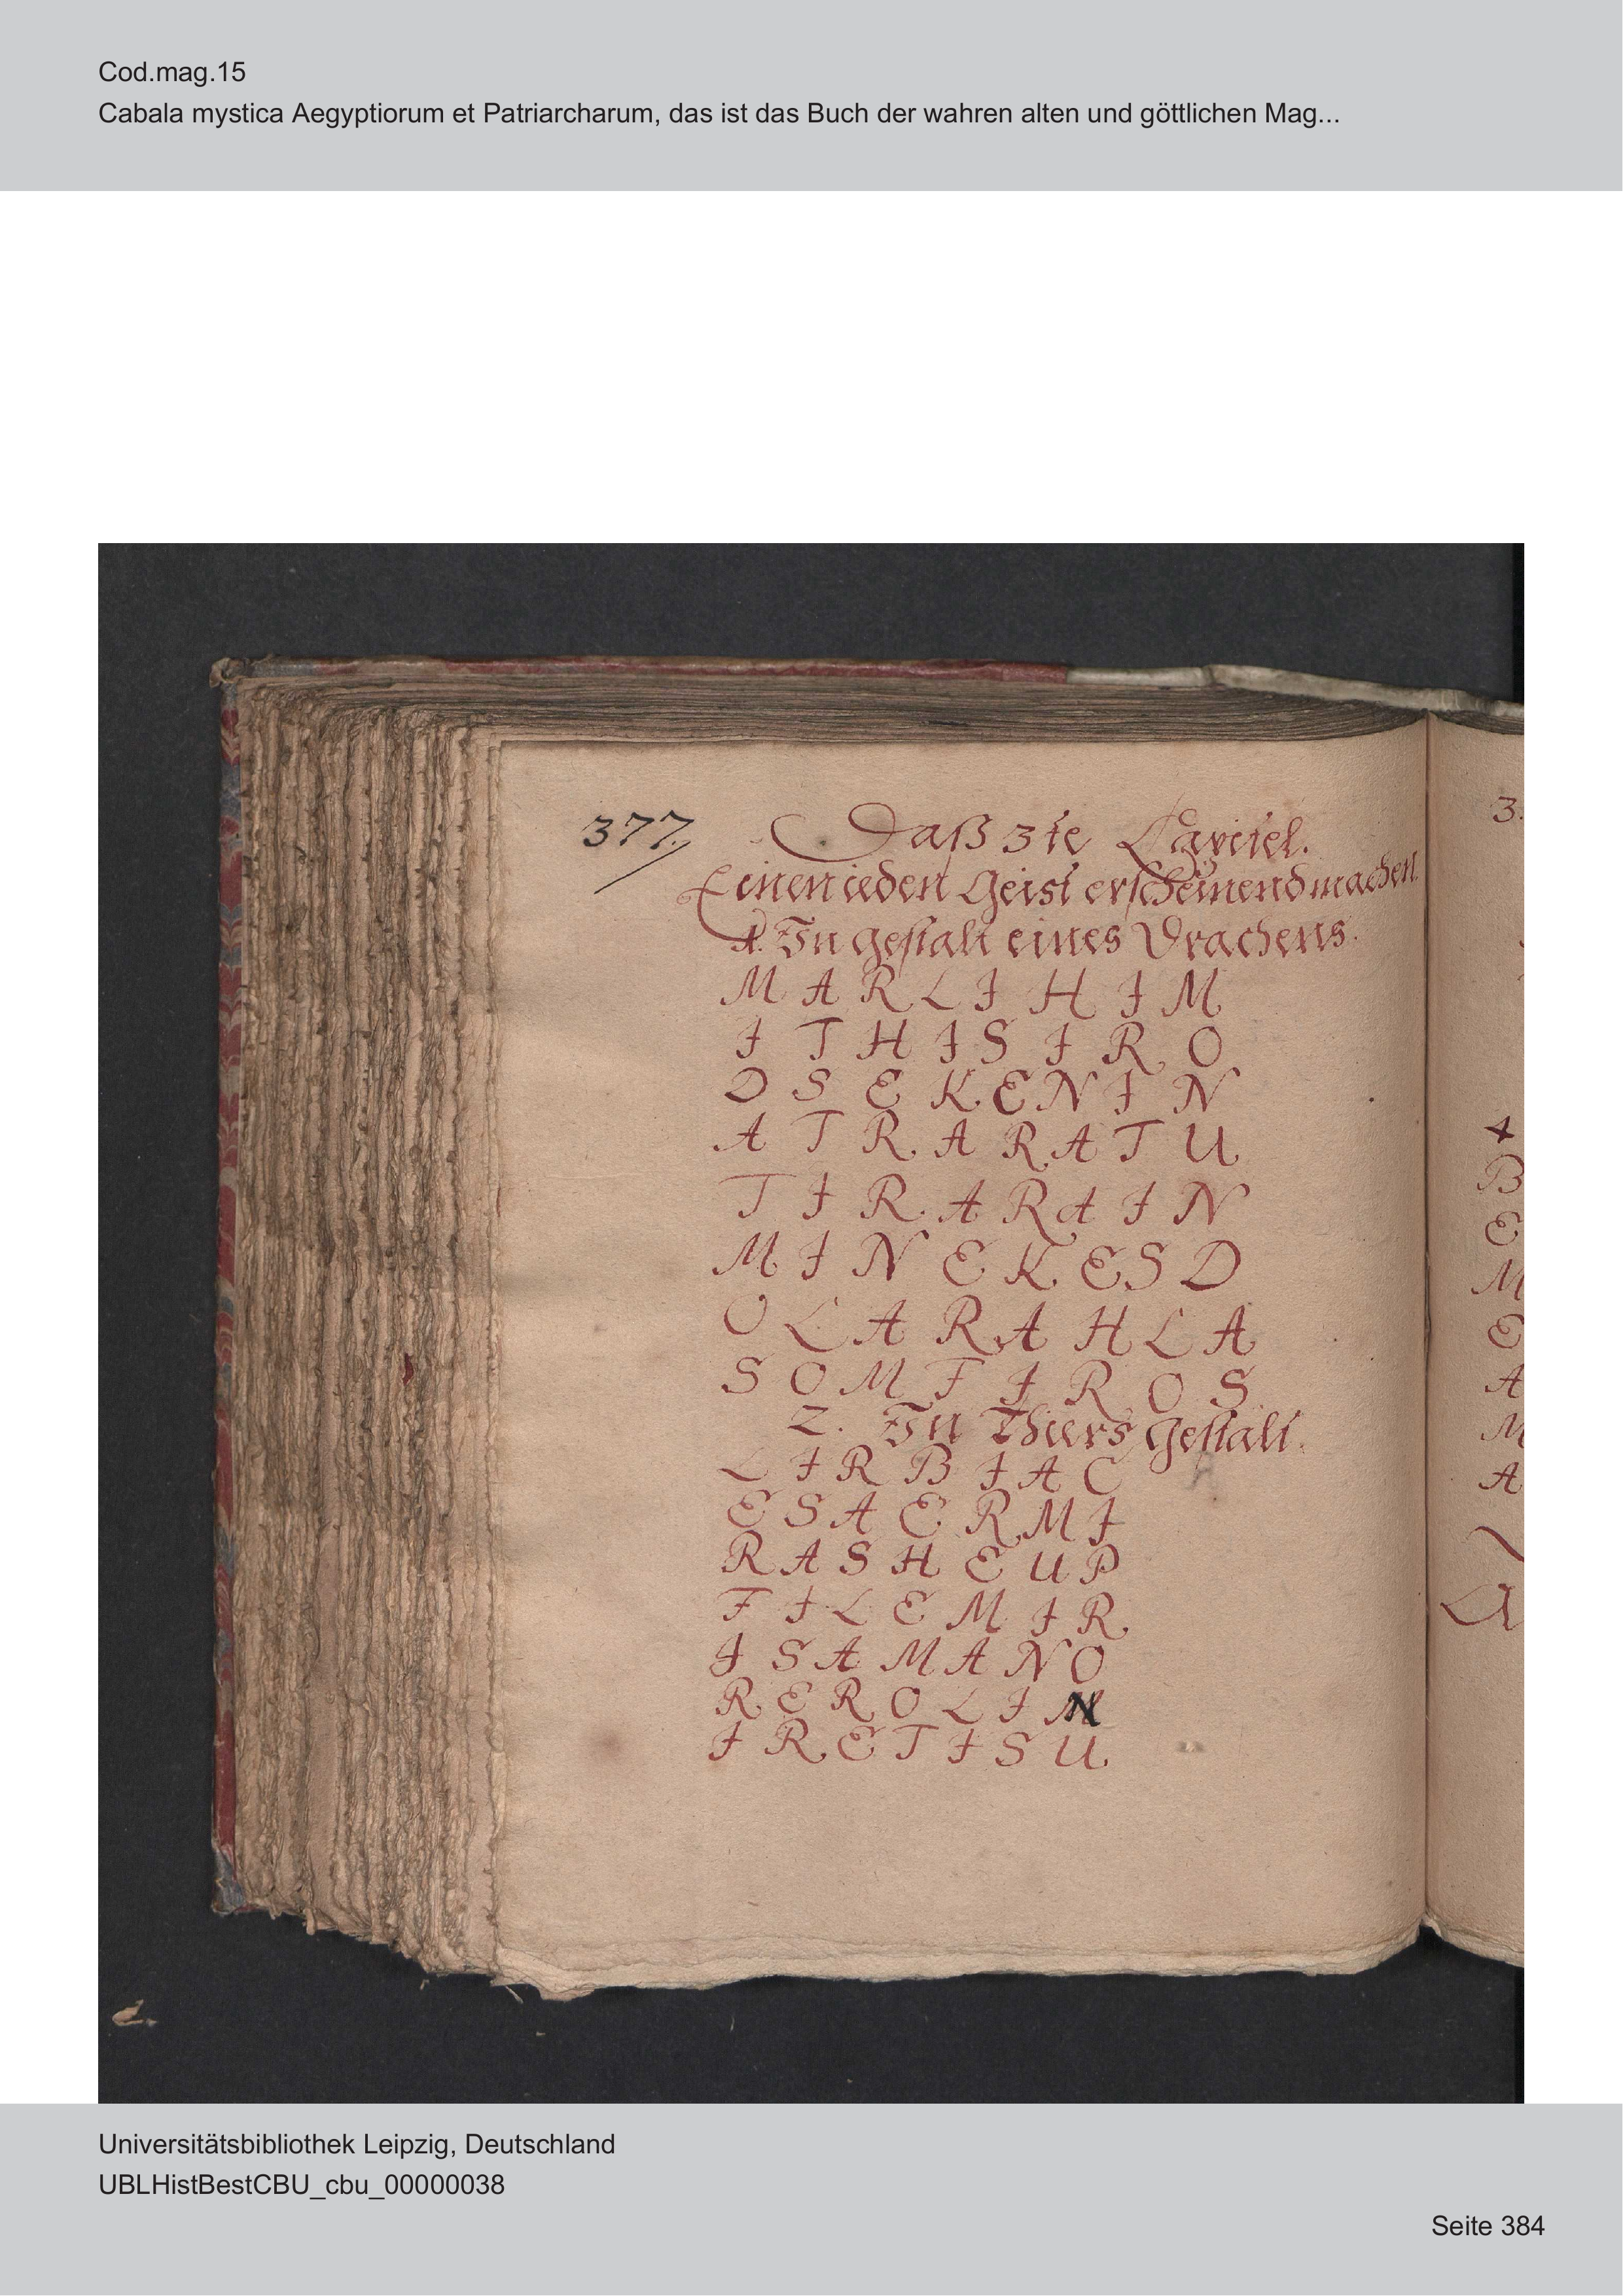 Cod.mag.15
Cabala mystica Aegyptiorum et Patriarcharum, das ist das Buch der wahren alten und göttlichen Mag...
377.
Daß 3te Capitel.
Einen ieden Geist erscheinend machen
1. In gestalt eines Drachens.
M A R L I H I M
I T H I S I R O
D S E K E N I N
A T R A R A T U
T I R A R A I N
M I N E K E S D
O L A R A H L A
S O M F I R O S
2. In Thiers gestalt.
L I R B I A C
E S A E R M I
R A S H E U P
F I L E M I R
I S A M A N O
R E R O L I N
I R E T I S U
3.
4
B
E
M
E
A
M
A
Universitätsbibliothek Leipzig, Deutschland
UBLHistBestCBU_cbu_00000038
Seite 384